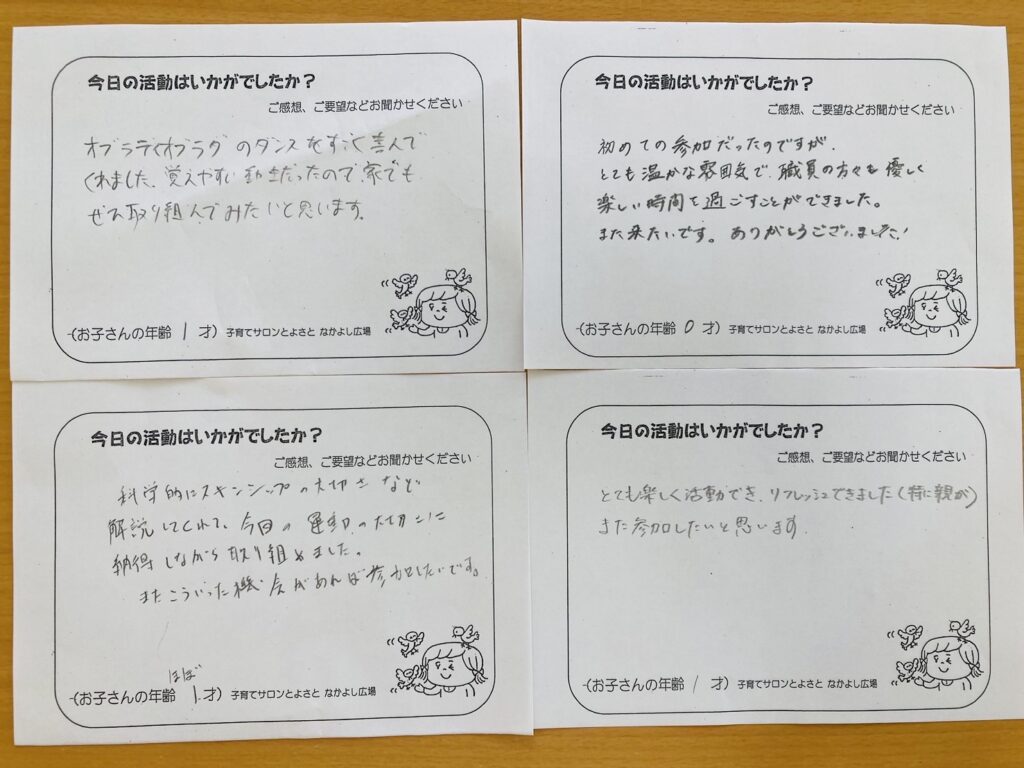 今日の活動はいかがでしたか?
ご感想、ご要望などお聞かせください
オブラディオブラダのダンスをすごく喜んで
くれました。覚えやすい動きだったので、家でも
ぜひ取り組んでみたいと思います。
(お子さんの年齢 1 才) 子育てサロンとよさと なかよし広場
今日の活動はいかがでしたか?
ご感想、ご要望などお聞かせください
初めての参加だったのですが、
とても温かな雰囲気で、職員の方々も優しく
楽しい時間を過ごすことができました。
また来たいです。ありがとうございました!
(お子さんの年齢 0 才) 子育てサロンとよさと なかよし広場
今日の活動はいかがでしたか?
ご感想、ご要望などお聞かせください
科学的にスキンシップの大切さなど
解説してくれて、今回の運動の大切さに
納得しながら取り組めました。
またこういった機会があれば参加したいです。
ほぼ
(お子さんの年齢 1 才) 子育てサロンとよさと なかよし広場
今日の活動はいかがでしたか?
ご感想、ご要望などお聞かせください
とても楽しく活動でき、リフレッシュできました(特に親が)
また参加したいと思います。
(お子さんの年齢 1 才) 子育てサロンとよさと なかよし広場